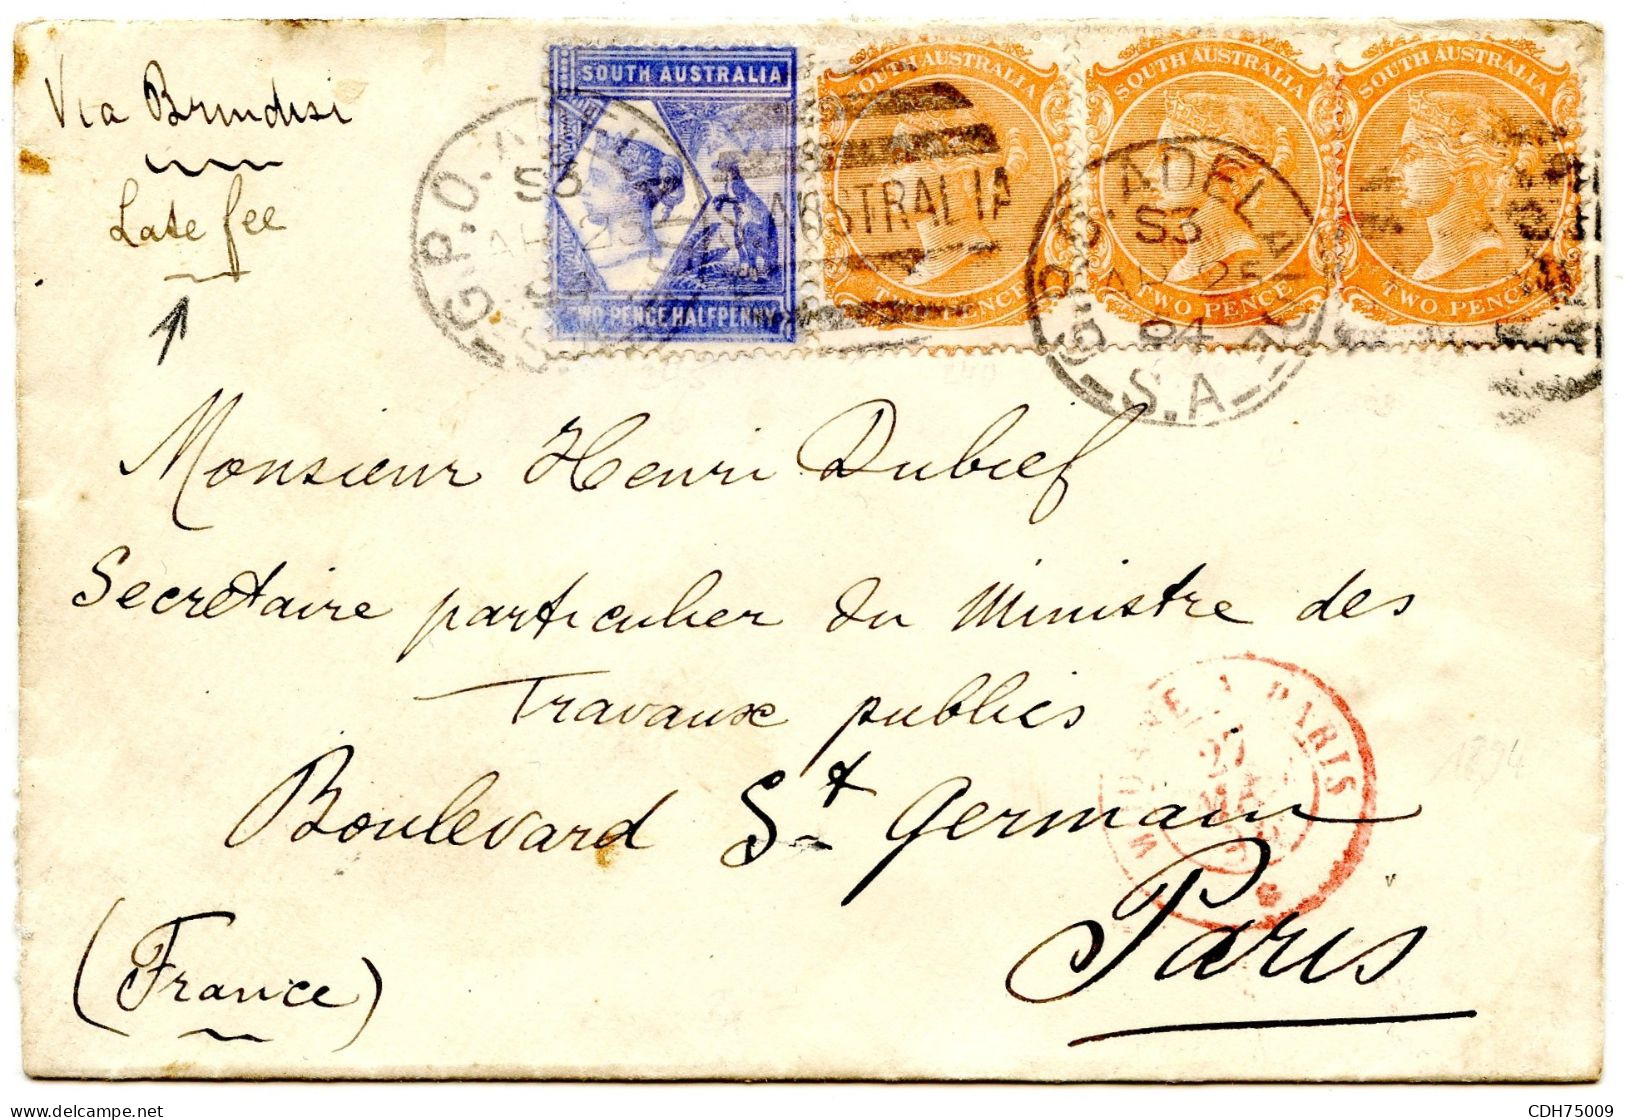 Via Brindisi
Late fee
SOUTH AUSTRALIA
TWO PENCE HALFPENNY
SOUTH AUSTRALIA
TWO PENCE
SOUTH AUSTRALIA
TWO PENCE
SOUTH AUSTRALIA
TWO PENCE
G.P.O. ADELAIDE
S3
AUSTRALIA
G.P.O. ADELAIDE
S3
94
S.A
Monsieur Henri Dubief
Secrétaire particulier du Ministre des
Travaux publics
Boulevard St Germain
Paris
(France)
MODANE A PARIS
27
1894
delcampe.net
CDH75009